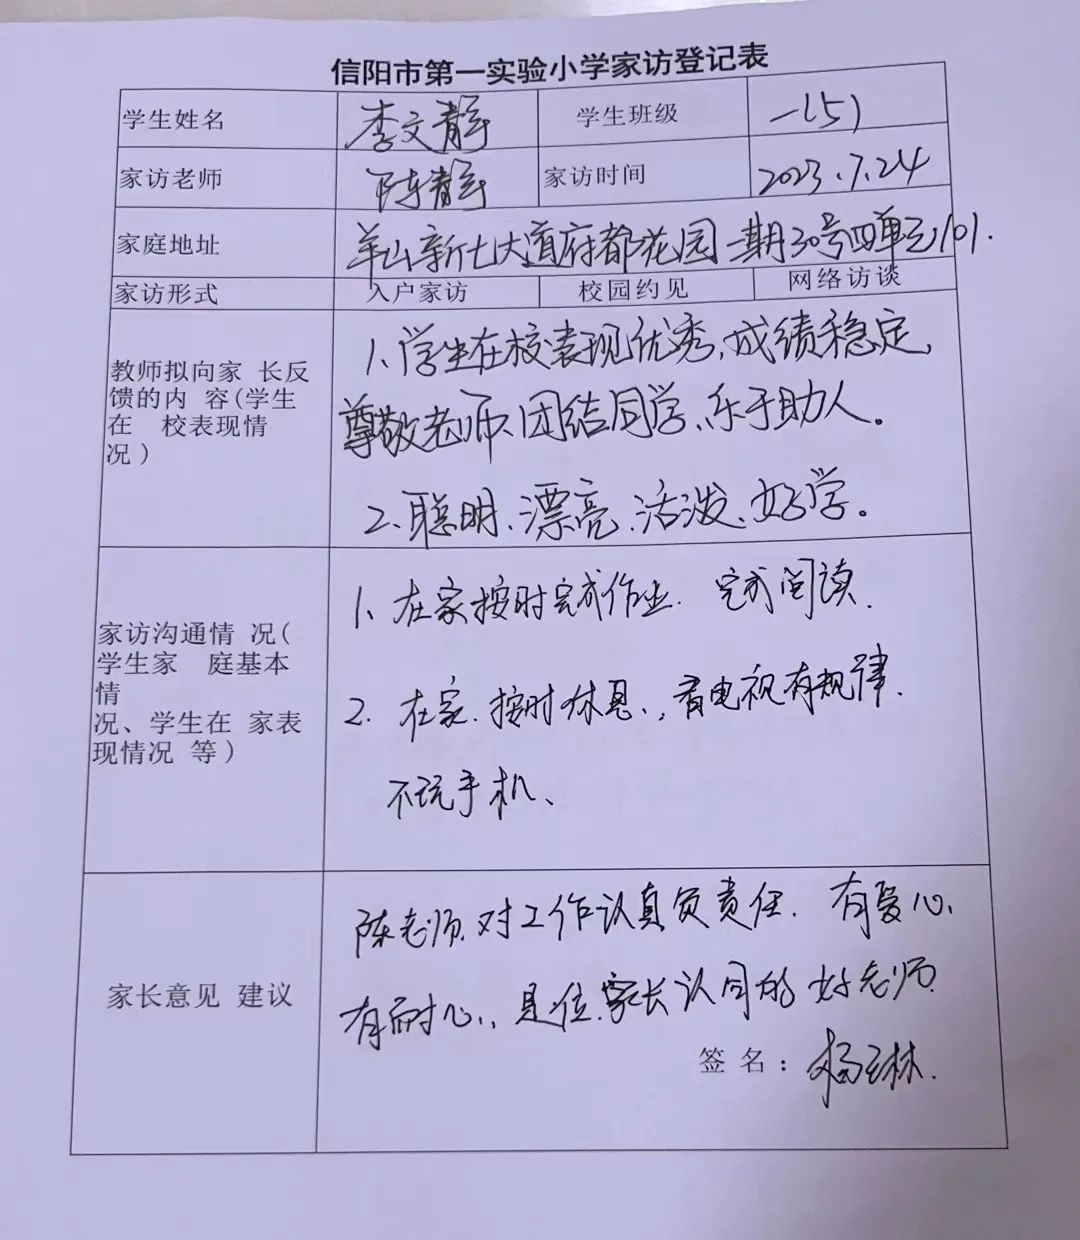 信阳市第一实验小学家访登记表
学生姓名 李文静 学生班级 一(5)
家访老师 陈静 家访时间 2023.7.24
家庭地址 羊山新七大道府都花园一期30号四单元101.
家访形式 入户家访 校园约见 网络访谈
教师拟向家 长反
馈的内 容(学生
在 校表现情
况)
1、学生在校表现优秀,成绩稳定,
尊敬老师、团结同学、乐于助人。
2、聪明、漂亮、活泼、好学。
家访沟通情 况(
学生家 庭基本
情
况、学生在 家表
现情况 等)
1、在家按时完成作业. 完成阅读.
2. 在家.按时休息.,看电视有规律.
不玩手机、
家长意见 建议
陈老师.对工作认真负责任. 有爱心、
有耐心.,是位.家长认同的好老师.
签名: 杨玉林.